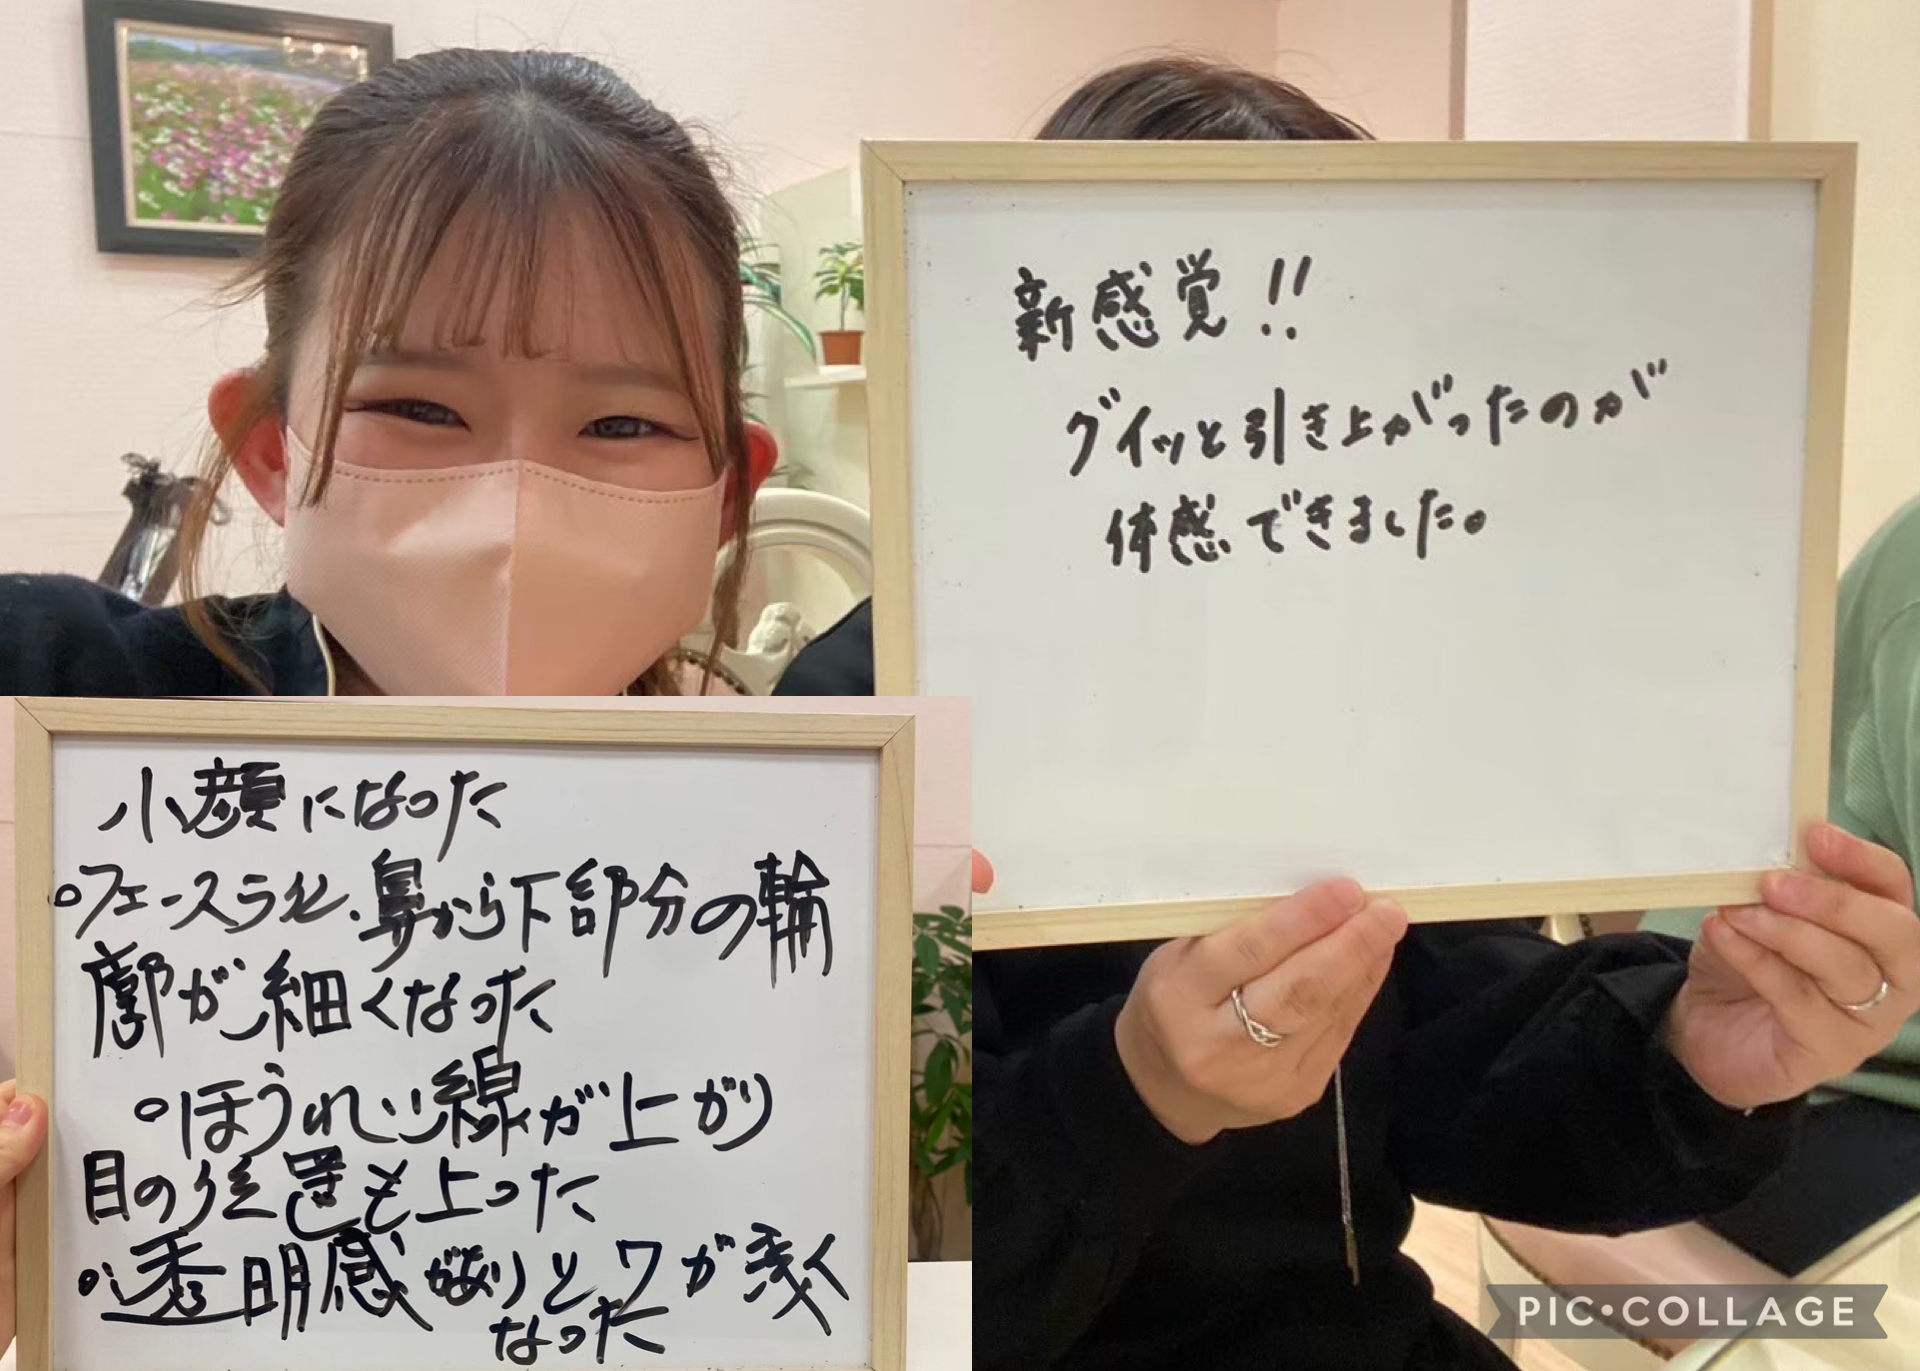 新感覚!!
グイッと引き上がったのが
体感できました。
小顔になった
○フェースライン.鼻から下部分の輪
廓が細くなった
○ほうれい線が上がり
目の位置も上った
○透明感がありシワが浅く
なった
PIC•COLLAGE